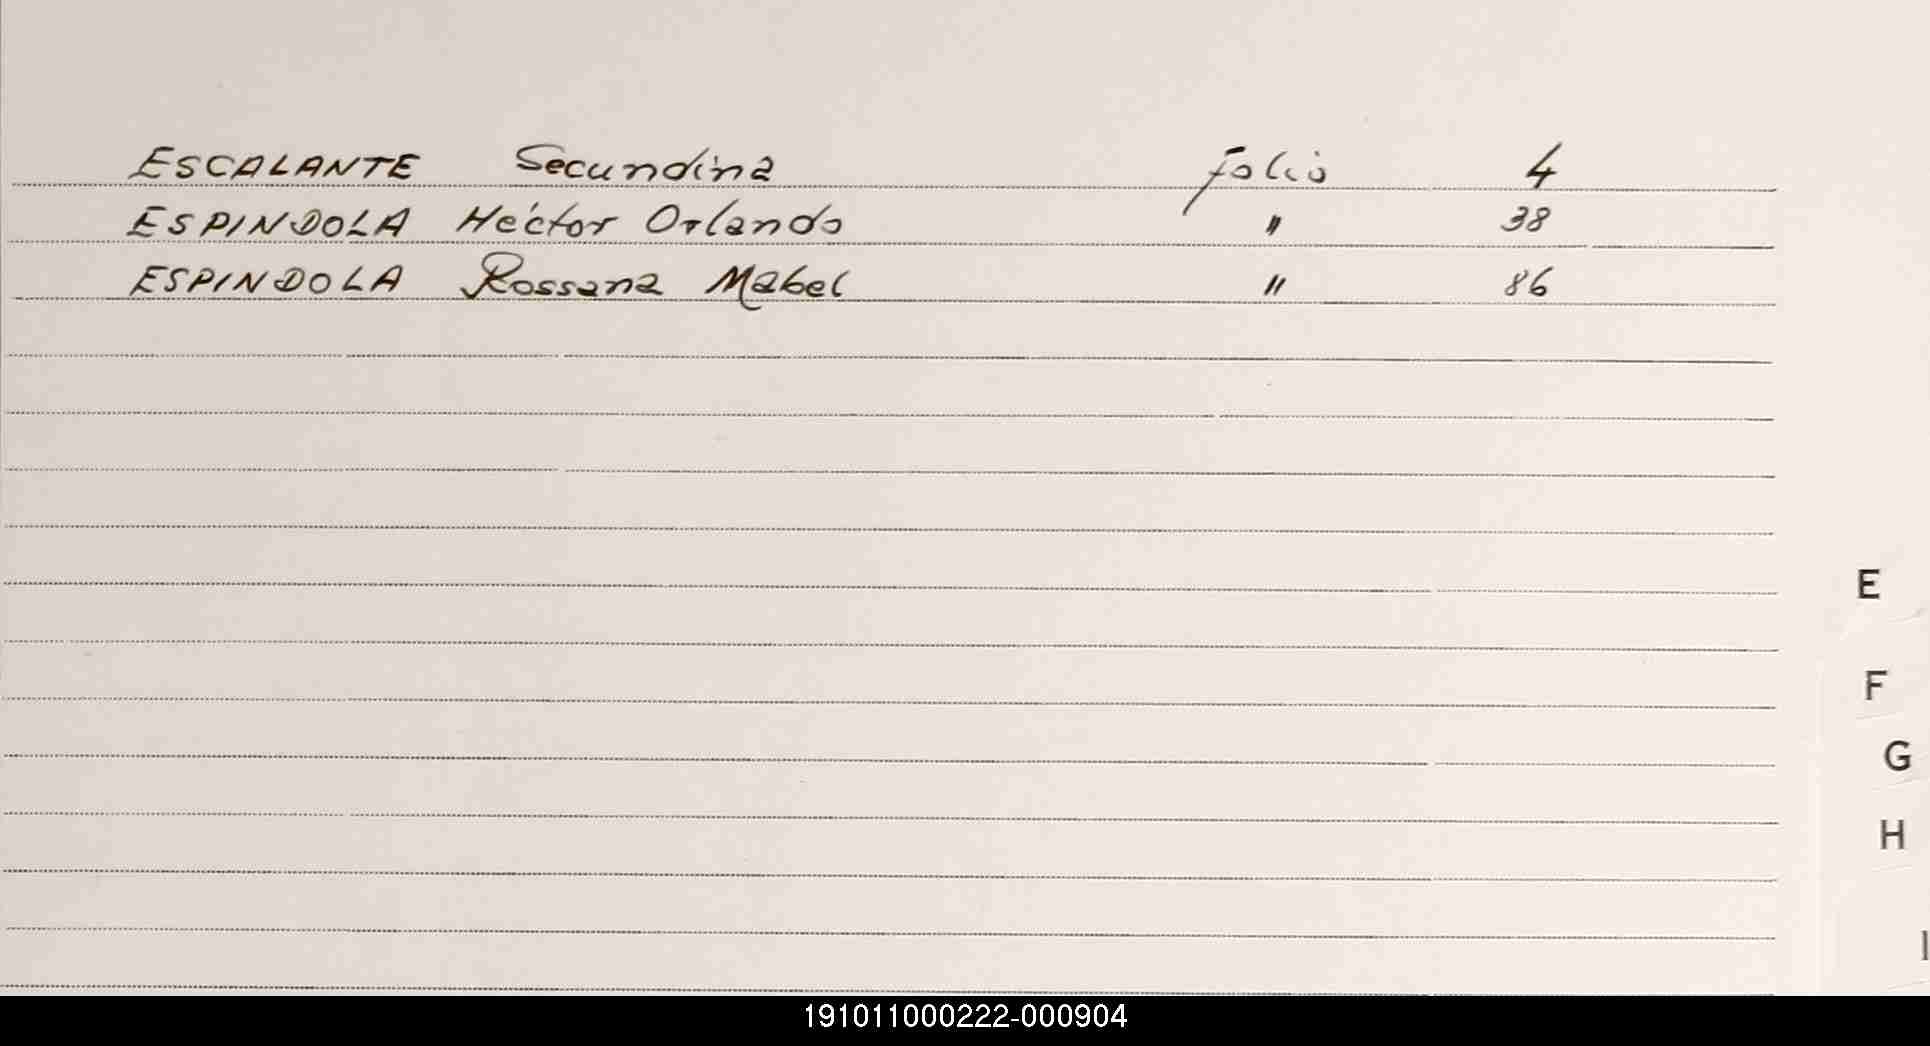 ESCALANTE Secundina folio 4
ESPINDOLA Héctor Orlando " 38
ESPINDOLA Rossana Mabel " 86
E
F
G
H
I
191011000222-000904